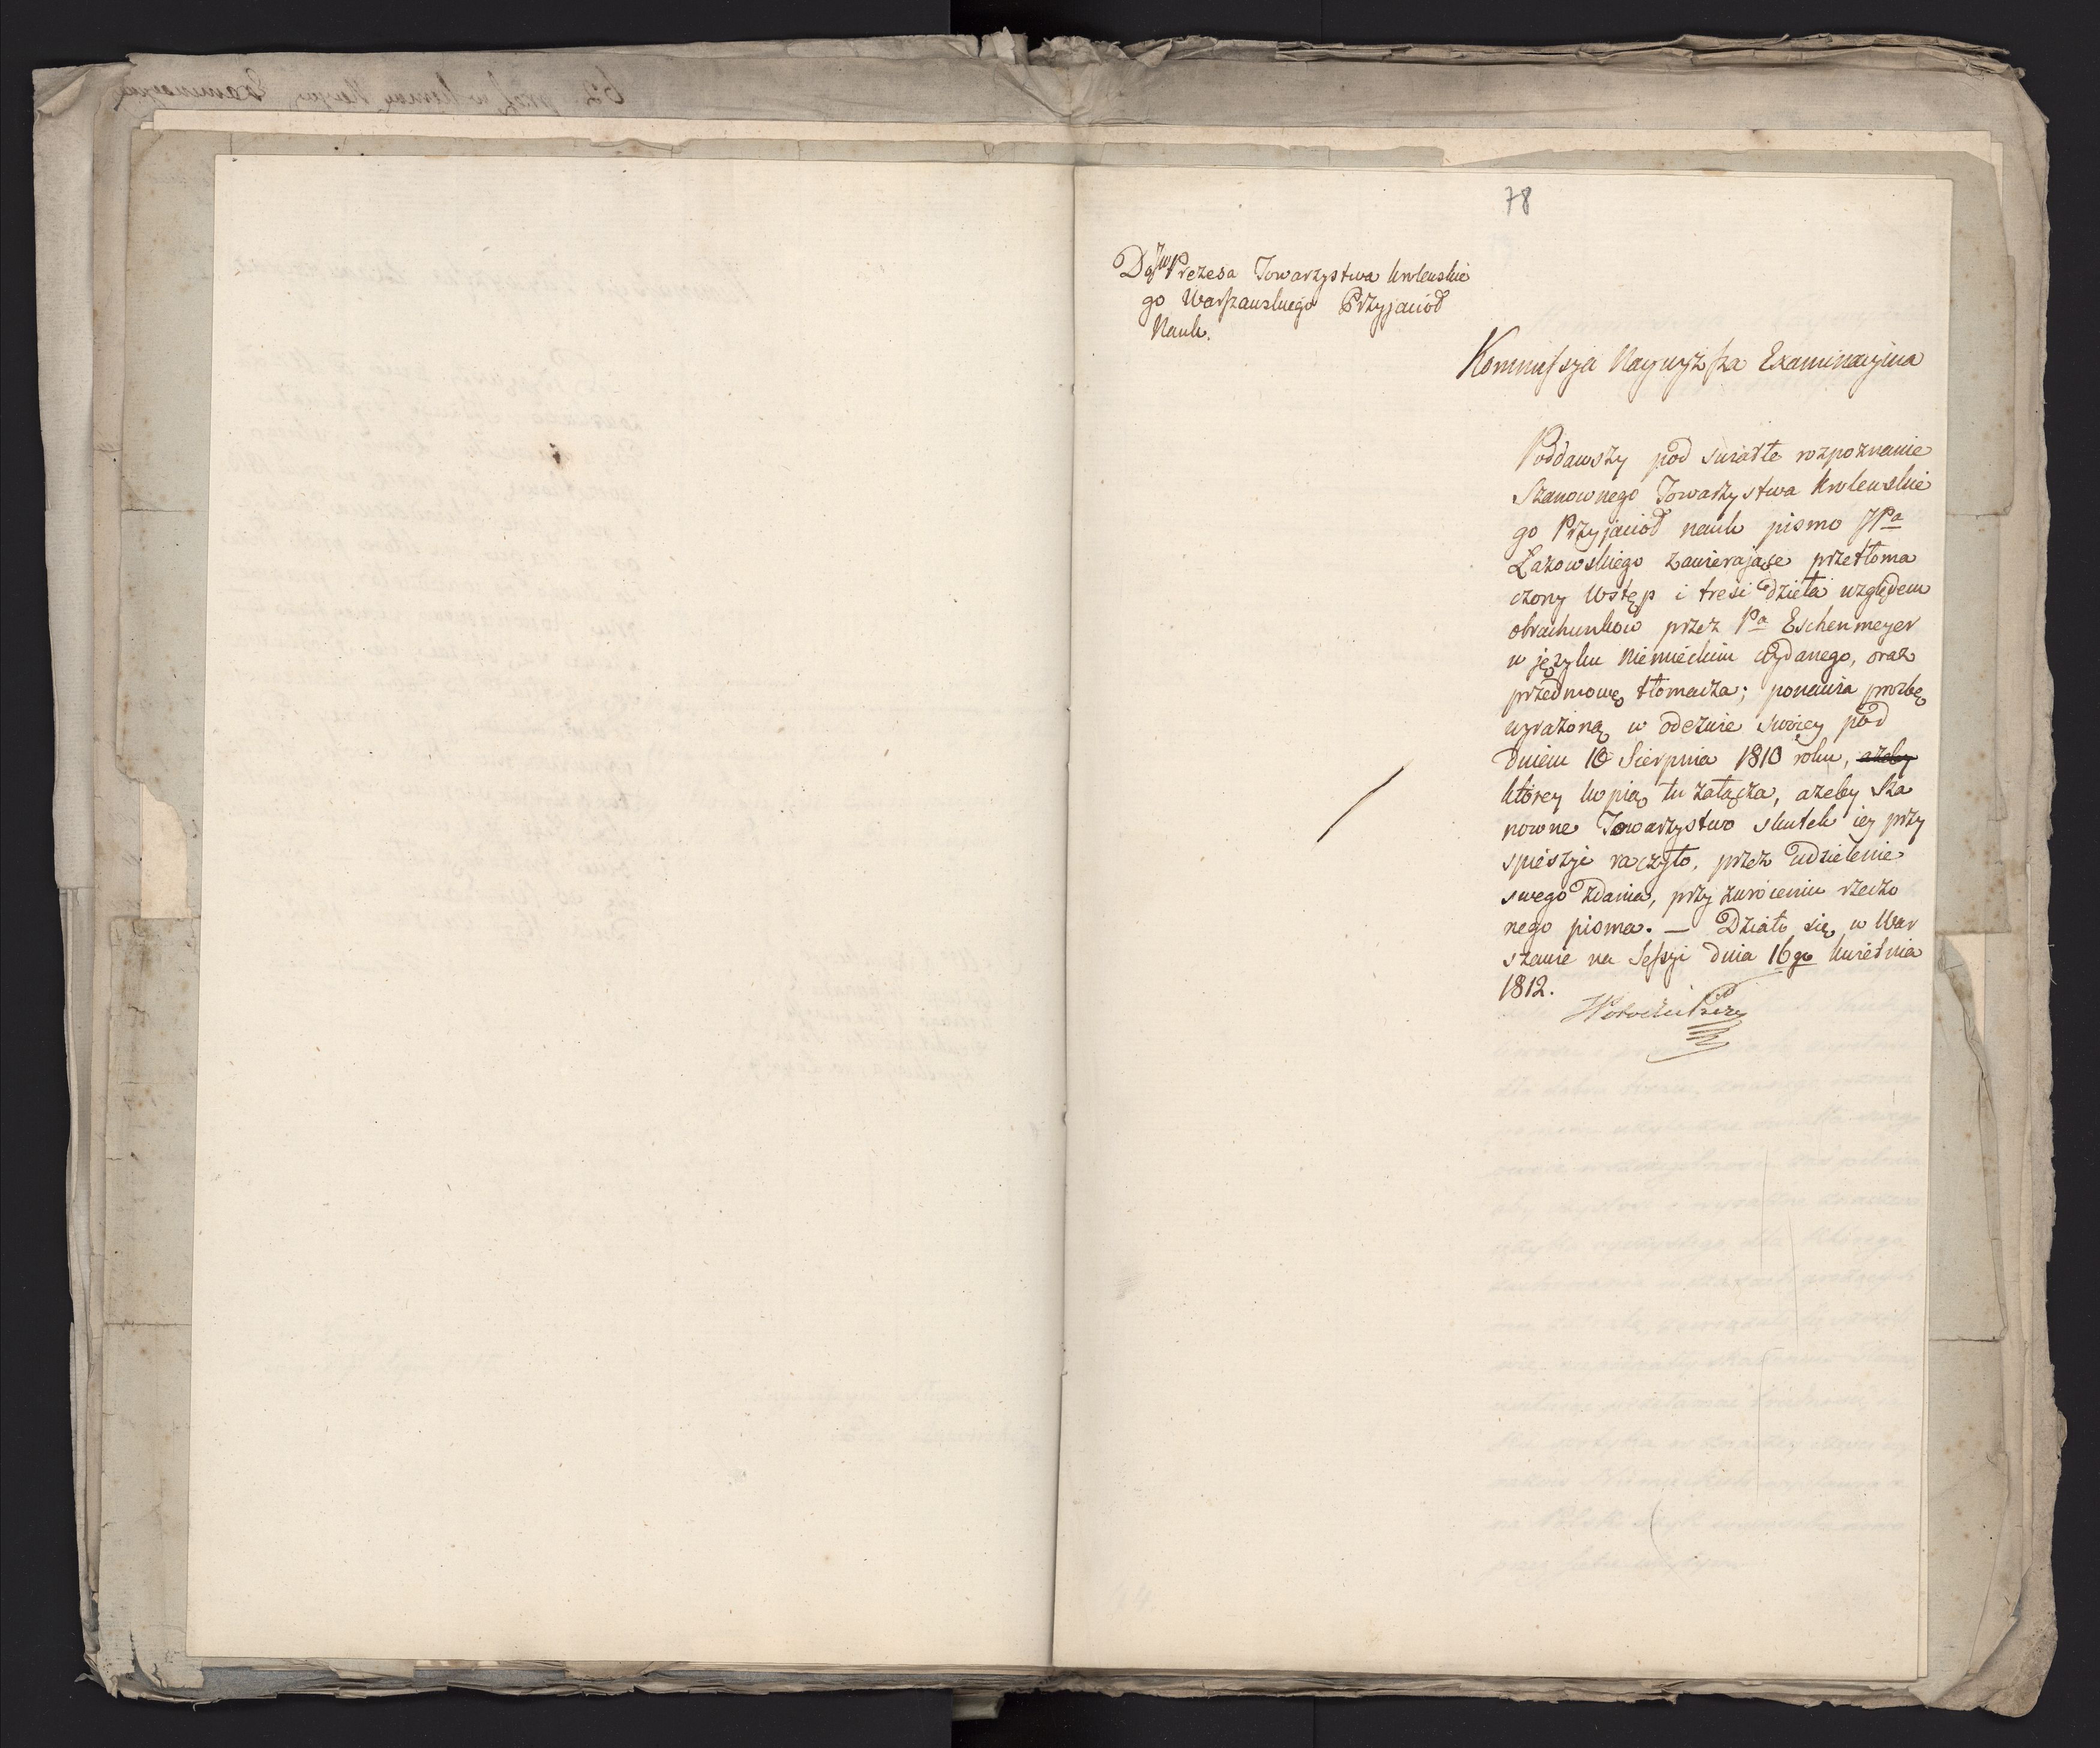 78
Do JW Prezesa Towarzystwa krolewskie
go Warszawskiego Przyjacioł
Nauk.
Kommissya Naywyższa Examinacyina
Poddawszy pod swiatłe rozpoznanie
Szanownego Towarzystwa krolewskie
go Przyjacioł nauk pismo JPa
Łazowskiego zawierające przetłoma
czony Wstęp i tresć dzieła względem
obrachunkow przez Pa Eschenmeyer
w języku Niemieckim wydanego, oraz
przedmowę tłomacza; ponawia prozbę
wyrażoną w odezwie swoiey pod
Dniem 10 Sierpnia 1810 roku, ażeby
ktorey kopią tu załącza, ażeby Sza
nowne Towarzystwo skutek iey przy
spieszyć raczyło, przez udzielenie
swego zdania, przy zwróceniu rzeczo
nego pisma. — Działo się w War
szawie na Sessyi dnia 16go kwietnia
1812.